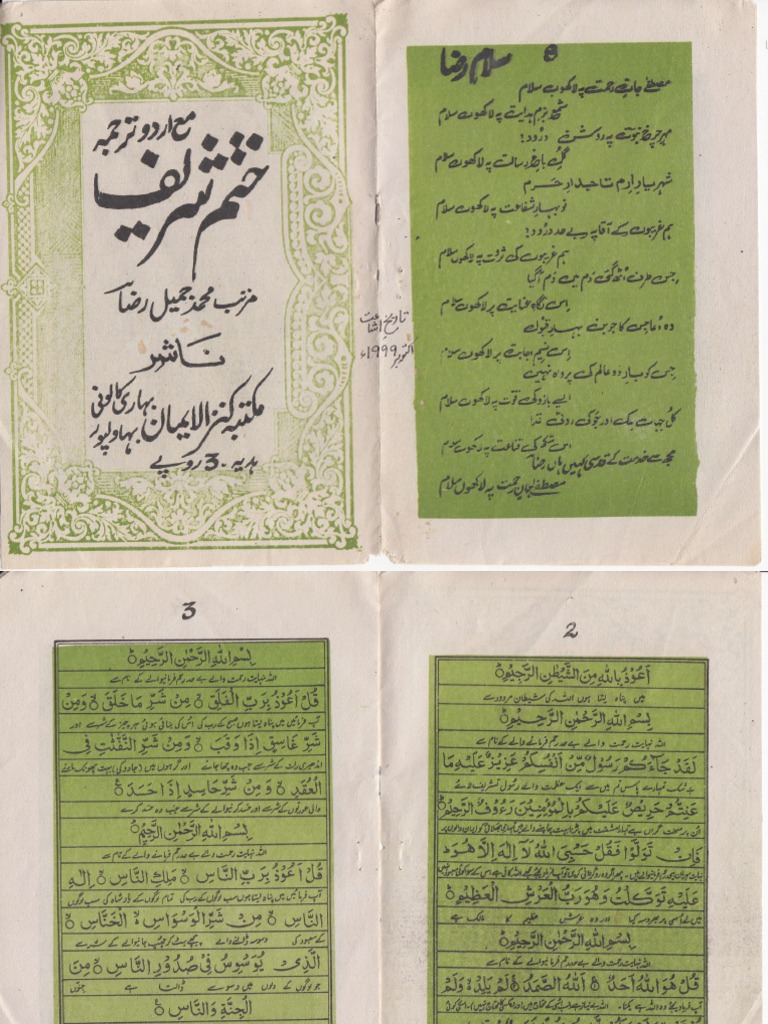 مع اردو ترجمہ
ختم شریف
مرتب محمد جمیل رضا
ناشر
مکتبہ کنز الایمان بہاری کالونی بہاولپور
ہدیہ 3 روپے
تاریخ اشاعت
اکتوبر 1999ء
سلام رضا
مصطفے جان رحمت پہ لاکھوں سلام
شمع بزم ہدایت پہ لاکھوں سلام
مہر چرخ نبوت پہ روشن درود
گل باغ رسالت پہ لاکھوں سلام
شہر یار ارم تاجدار حرم
نوبہار شفاعت پہ لاکھوں سلام
ہم غریبوں کے آقا پہ بے حد درود
ہم غریبوں کی ثروت پہ لاکھوں سلام
جس طرف اٹھ گئی دم میں دم آ گیا
اس نگاہ عنایت پر لاکھوں سلام
وہ دعا جس کا جوبن بہار قبول
اس نسیم اجابت پر لاکھوں سلام
جس کو بار دو عالم کی پرواہ نہیں
ایسے بازو کی قوت پہ لاکھوں سلام
کل جہاں ملک اور جو کی روٹی غذا
اس شکم کی قناعت پہ لاکھوں سلام
مجھ سے خدمت کے قدسی کہیں ہاں رضا
مصطفے جان رحمت پہ لاکھوں سلام
3
بِسْمِ اللهِ الرَّحْمٰنِ الرَّحِيْمِ
اللہ نہایت رحمت والے بے حد رحم فرمانیوالے کے نام سے
قُلْ اَعُوْذُ بِرَبِّ الْفَلَقِ ۙ مِنْ شَرِّ مَا خَلَقَ ۙ وَمِنْ
شَرِّ غَاسِقٍ اِذَا وَقَبَ ۙ وَمِنْ شَرِّ النَّفّٰثٰتِ فِي
الْعُقَدِ ۙ وَمِنْ شَرِّ حَاسِدٍ اِذَا حَسَدَ
بِسْمِ اللهِ الرَّحْمٰنِ الرَّحِيْمِ
اللہ نہایت رحمت والے بے حد رحم فرمانے والے کے نام سے
قُلْ اَعُوْذُ بِرَبِّ النَّاسِ ۙ مَلِكِ النَّاسِ ۙ اِلٰهِ
النَّاسِ ۙ مِنْ شَرِّ الْوَسْوَاسِ ۙ الْخَنَّاسِ
الَّذِيْ يُوَسْوِسُ فِيْ صُدُوْرِ النَّاسِ ۙ مِنَ
جو لوگوں کے دلوں میں وسوسے ڈالتا ہے جنوں
الْجِنَّةِ وَالنَّاسِ
2
اَعُوْذُ بِاللهِ مِنَ الشَّيْطٰنِ الرَّجِيْمِ
میں پناہ لیتا ہوں اللہ کی شیطان مردود سے
بِسْمِ اللهِ الرَّحْمٰنِ الرَّحِيْمِ
اللہ نہایت رحمت والے بے حد رحم فرمانے والے کے نام سے
لَقَدْ جَآءَكُمْ رَسُوْلٌ مِّنْ اَنْفُسِكُمْ عَزِيْزٌ عَلَيْهِ مَا
عَنِتُّمْ حَرِيْصٌ عَلَيْكُمْ بِالْمُؤْمِنِيْنَ رَءُوْفٌ الرَّحِيْمُ
فَاِنْ تَوَلَّوْا فَقُلْ حَسْبِيَ اللهُ لَا اِلٰهَ اِلَّا هُوَ
عَلَيْهِ تَوَكَّلْتُ وَهُوَ رَبُّ الْعَرْشِ الْعَظِيْمِ
میں نے اسی پر بھروسہ کیا اور وہ عرش عظیم کا مالک ہے
بِسْمِ اللهِ الرَّحْمٰنِ الرَّحِيْمِ
اللہ نہایت رحمت والے بے حد رحم فرمانے والے کے نام سے
قُلْ هُوَ اللهُ اَحَدٌ ۚ اَللهُ الصَّمَدُ ۚ لَمْ يَلِدْ ۙ وَلَمْ